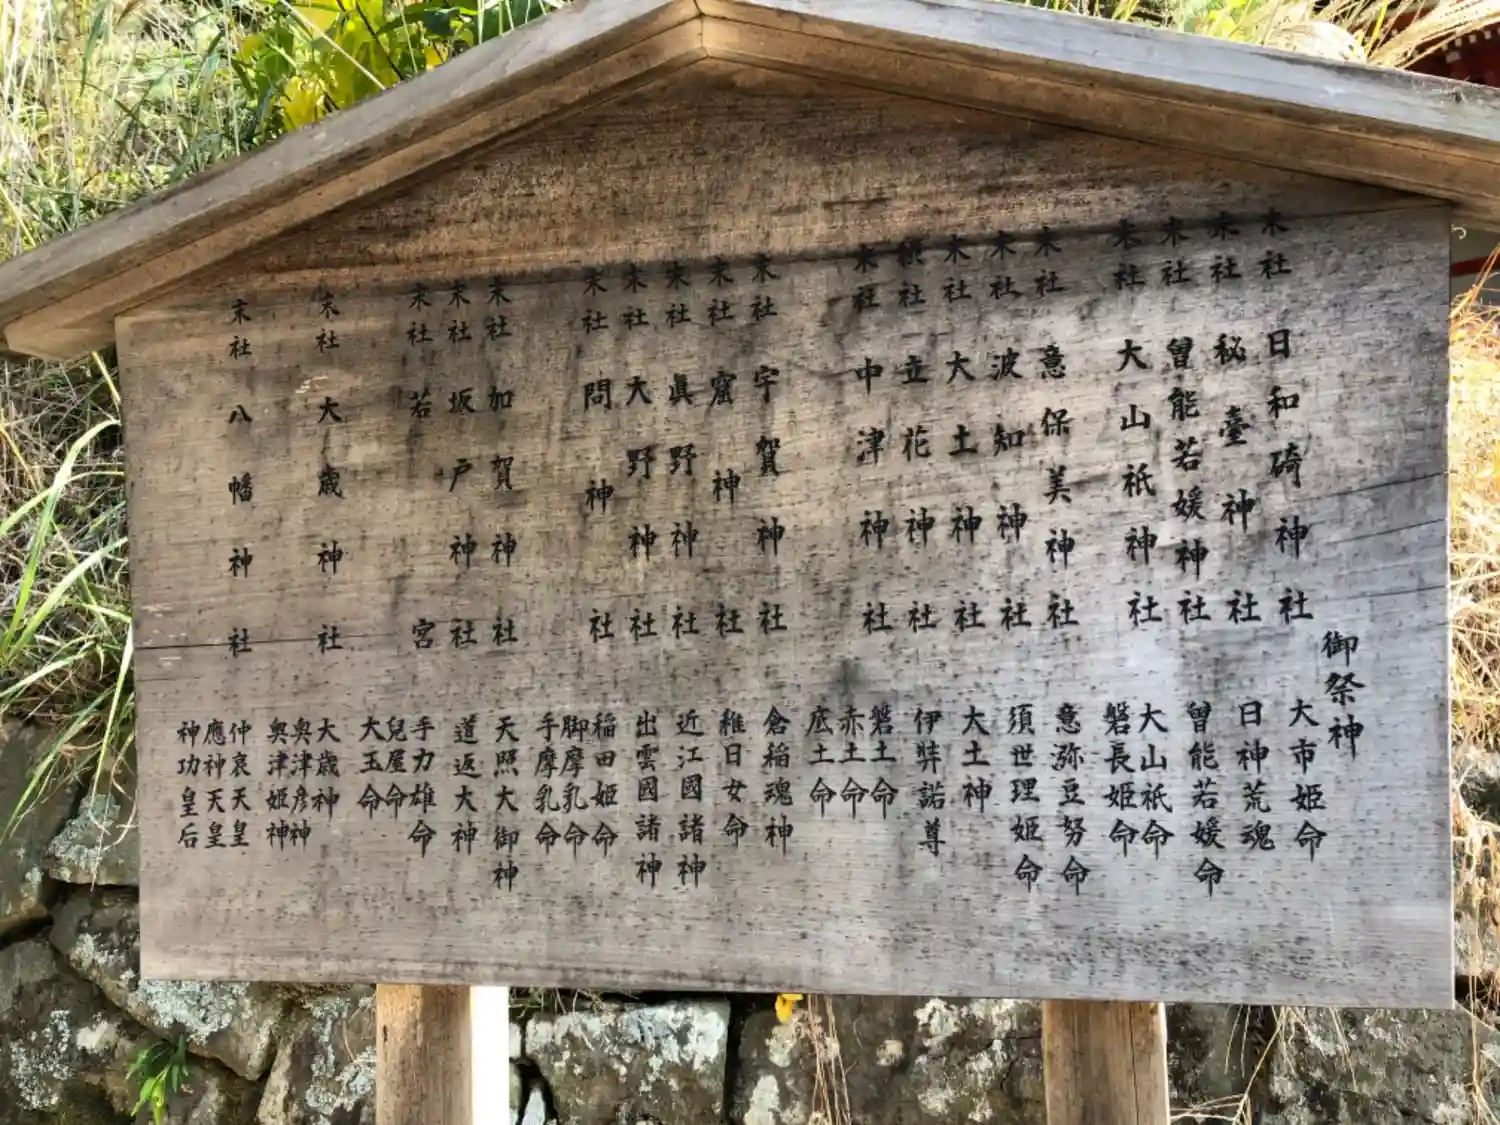 御祭神
末社 日和碕神社 大市姫命
末社 秘臺神社 日神荒魂
末社 曽能若媛神社 曽能若媛命
末社 大山祇神社 大山祇命 磐長姫命
末社 意保美神社 意弥豆努命
末社 波知神社 須世理姫命
末社 大土神社 大土神
社 立花神社 伊弉諾尊
末社 中津神社 磐土命 赤土命 底土命
末社 宇賀神社 倉稲魂神
末社 窟神社 稚日女命
末社 眞野神社 近江國諸神
末社 大野神社 出雲國諸神
末社 問神社 稲田姫命 脚摩乳命 手摩乳命
末社 加賀神社 天照大御神
末社 坂戸神社 道返大神
末社 若宮 手力雄命 兒屋命 大玉命
末社 大歳神社 大歳神 奥津彦神 奥津姫神
末社 八幡神社 仲哀天皇 應神天皇 神功皇后